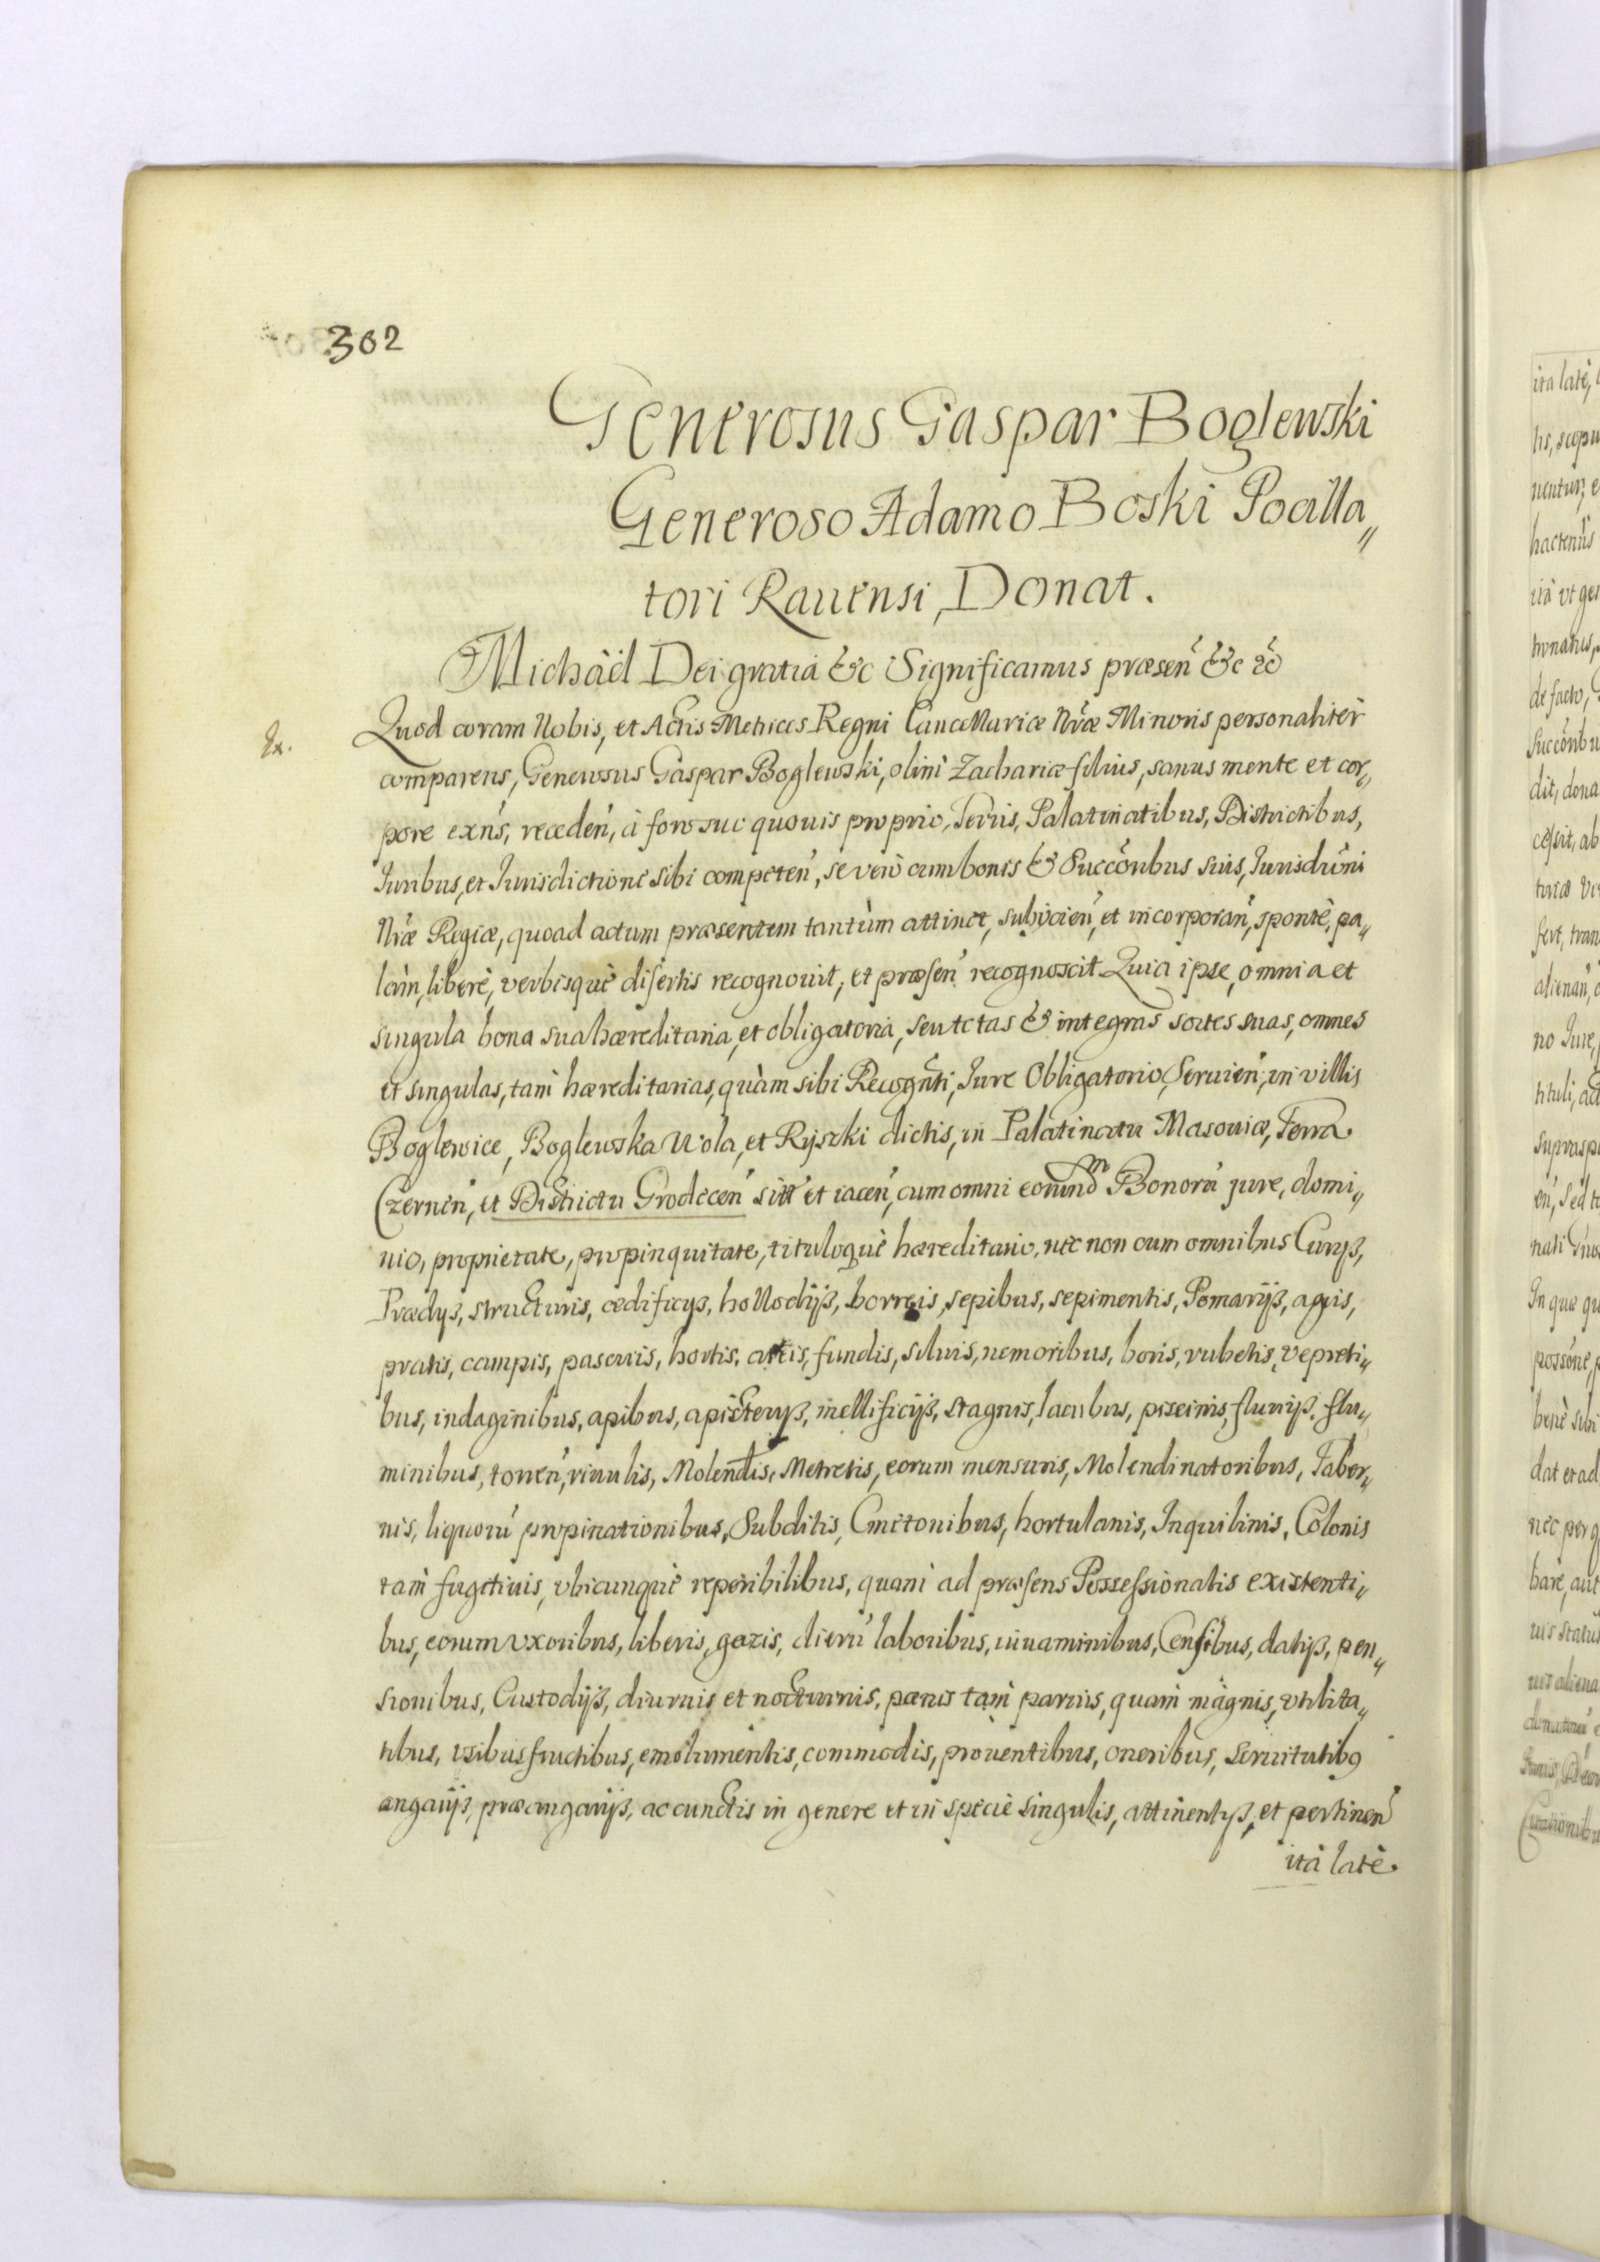 302
Generosus Gaspar Boglewski
Generoso Adamo Boski Pocilla„
tori Rauensi, Donat.
Michaël Dei gratia &c Significamus præsen̄ &c &c
Ex.
Quod coram Nobis, et Actis Metrices Regni Cancellariæ Nr̄æ Minoris personaliter
comparens, Generosus Gaspar Boglewski, olim Zachariæ filius, sanus mente et cor„
pore exn̄s, receden̄, à foro suo quouis proprio, Terris, Palatinatibus, Districtibus,
Juribus, et Jurisdictione sibi competen̄, se vero cum bonis & Succōribus suis, Jurisdn̄i
Nr̄æ Regiæ, quoad actum præsentem tantùm attinet, subijcien̄, et incorporan̄, spontè, pa„
làm, liberè, verbisquè disertis recognouit, et præsen̄ recognoscit Quia ipse, omnia et
singula bona sua hæreditaria, et obligatoria, seu totas & integras sortes suas, omnes
et singulas, tam hæreditarias, quàm sibi Recogn̄ti, Jure Obligatorio, Seruien̄, in villis
Boglewice, Boglewska Wola, et Ryszki dictis, in Palatinatu Masouiæ, Terra
Czernen̄, et Districtu Grodecen̄ sitt̄ et iacen̄, cum omni eorund̄m Bonorū jure, domi„
nio, proprietate, propinquitate, tituloquè hæreditario, nec non cum omnibus Curijs,
Prædijs, structuris, ædificijs, hollodijs, horreis, sepibus, sepimentis, Pomarijs, agris,
pratis, campis, pascuis, hortis, areis, fundis, siluis, nemoribus, boris, rubetis, vepreti„
bus, indaginibus, apibus, apisterijs, mellificijs, stagnis, lacubus, piscinis, fluuijs, flu„
minibus, torren̄, riuulis, Molend̄is, Metretis, eorum mensuris, Molendinatoribus, Taber„
nis, liquorū propinationibus, Subditis, Cmetonibus, hortulanis, Inquilinis, Colonis
tam fugitiuis, vbicunquè reperibilibus, quam ad præsens Possessionatis existenti„
bus, eorum vxoribus, liberis, gazis, dierū laboribus, iuuaminibus, Censibus, datijs, pen„
sionibus, Custodijs, diurnis et nocturnis, pœnis tam paruis, quam magnis, vtilita„
tibus, vsibusfructibus, emolumentis, commodis, prouentibus, oneribus, seruitutibꝰ
angarijs, præangarijs, ac cunctis in genere et in specie singulis, attinentijs, et pertinen̄
ità latè.